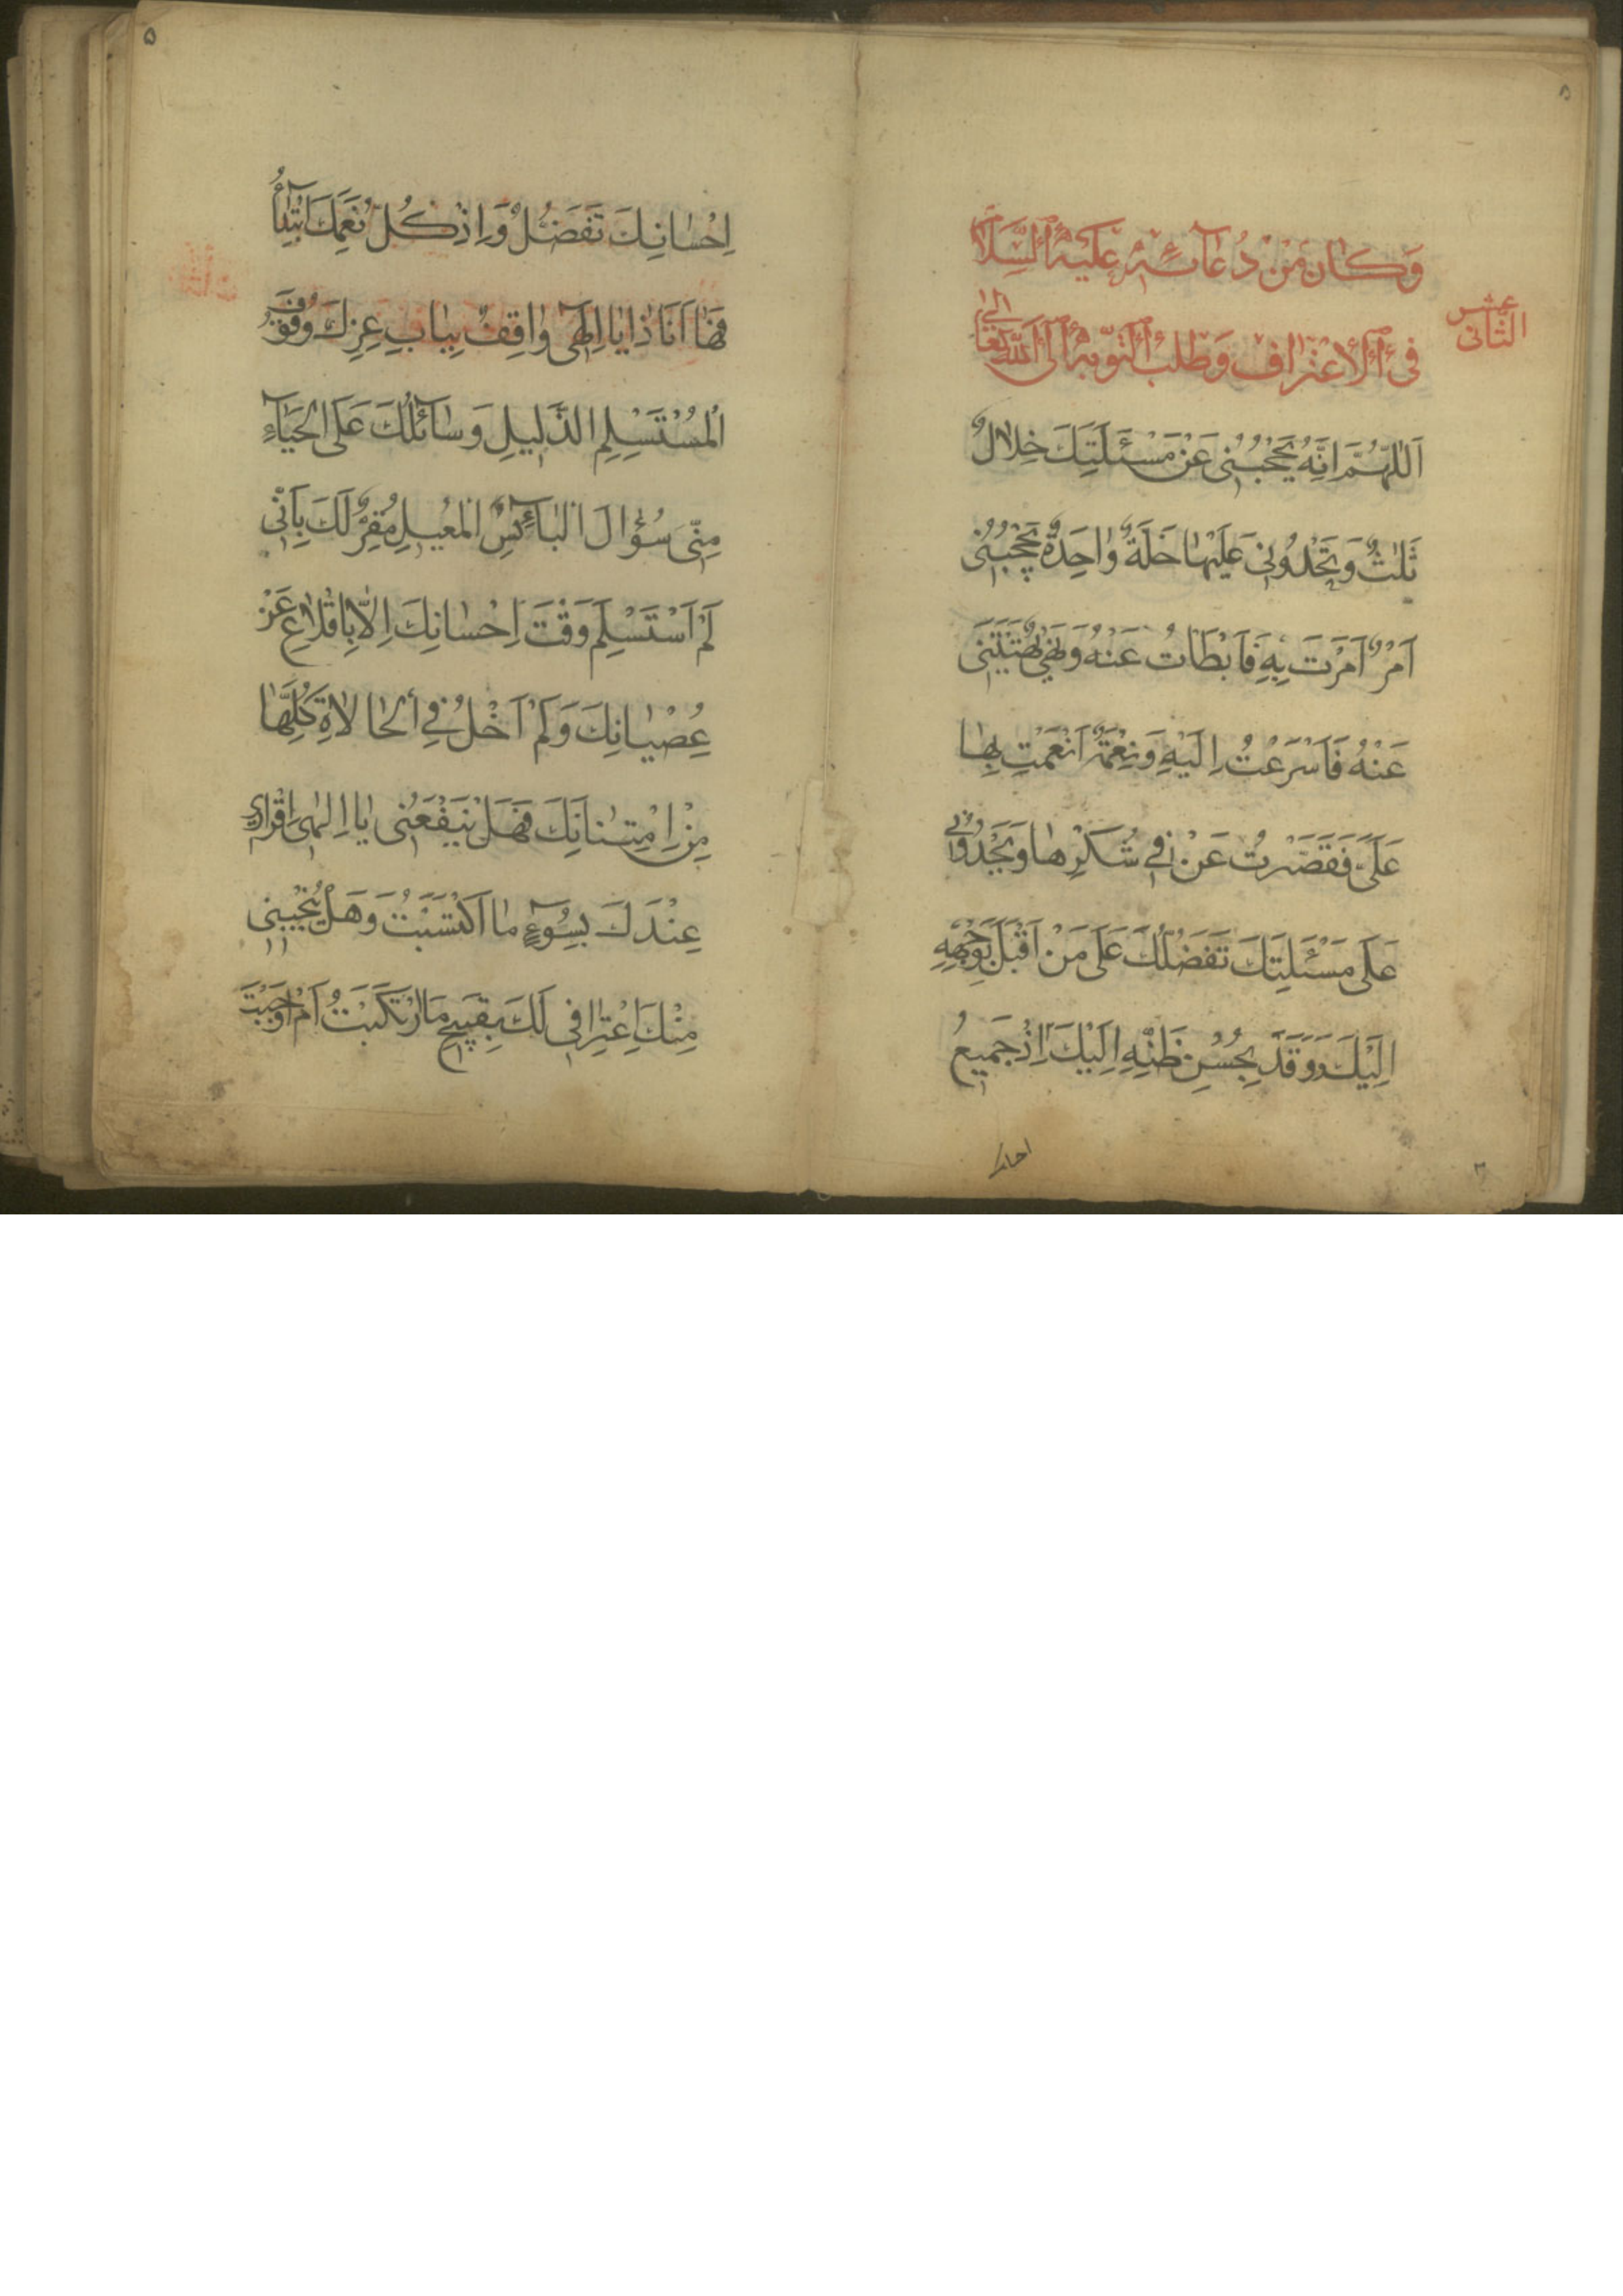 ۵
وَكانَ مِنْ دُعآئِهِ عَلَيْهِ السَّلامُ
الثّانى عشر
فِى الْاِعْتِرافِ وَطَلَبِ التَّوْبَةِ اِلَى اللهِ تَعالى
اَللّهُمَّ اِنَّهُ يَحْجُبُنى عَنْ مَسْئَلَتِكَ خِلالٌ
ثَلٰثٌ وَتَحْدُونى عَلَيْها خَلَّةٌ واحِدَةٌ يَحْجُبُنى
اَمْرٌ اَمَرْتَ بِهِ فَاَبْطَاْتُ عَنْهُ وَنَهْىٌ نَهَيْتَنى
عَنْهُ فَاَسْرَعْتُ اِلَيْهِ وَنِعْمَةٌ اَنْعَمْتَ بِها
عَلَىَّ فَقَصَّرْتُ عَنْ فى شُكْرِها وَيَحْدُونى
عَلى مَسْئَلَتِكَ تَفَضُّلُكَ عَلى مَنْ اَقْبَلَ بِوَجْهِهِ
اِلَيْكَ وَوَفَدَ بِحُسْنِ ظَنِّهِ اِلَيْكَ اِذْ جَميعُ
۵
اِحْسانِكَ تَفَضُّلٌ وَاِذْ كُلُّ نِعَمِكَ ابْتِدآءٌ
فَها اَنَا ذا يا اِلهى واقِفٌ بِبابِ عِزِّكَ وُقُوفَ
الْمُسْتَسْلِمِ الذَّليلِ وَسآئِلُكَ عَلَى الْحَيآءِ
مِنّى سُؤالَ الْبآئِسِ الْمُعيلِ مُقِرٌّ لَكَ بِاَنّى
لَمْ اَسْتَسْلِمْ وَقْتَ اِحْسانِكَ اِلّا بِالْاِقْلاعِ عَنْ
عِصْيانِكَ وَلَمْ اَخْلُ فِى الْحالاتِ كُلِّها
مِنِ امْتِنانِكَ فَهَلْ يَنْفَعُنى يا اِلهى اِقْرارى
عِنْدَكَ بِسُوءِ ما اكْتَسَبْتُ وَهَلْ يُنْجينى
مِنْكَ اِعْتِرافى لَكَ بِقَبيحِ مَا ارْتَكَبْتُ اَمْ اَوْجَبْتَ